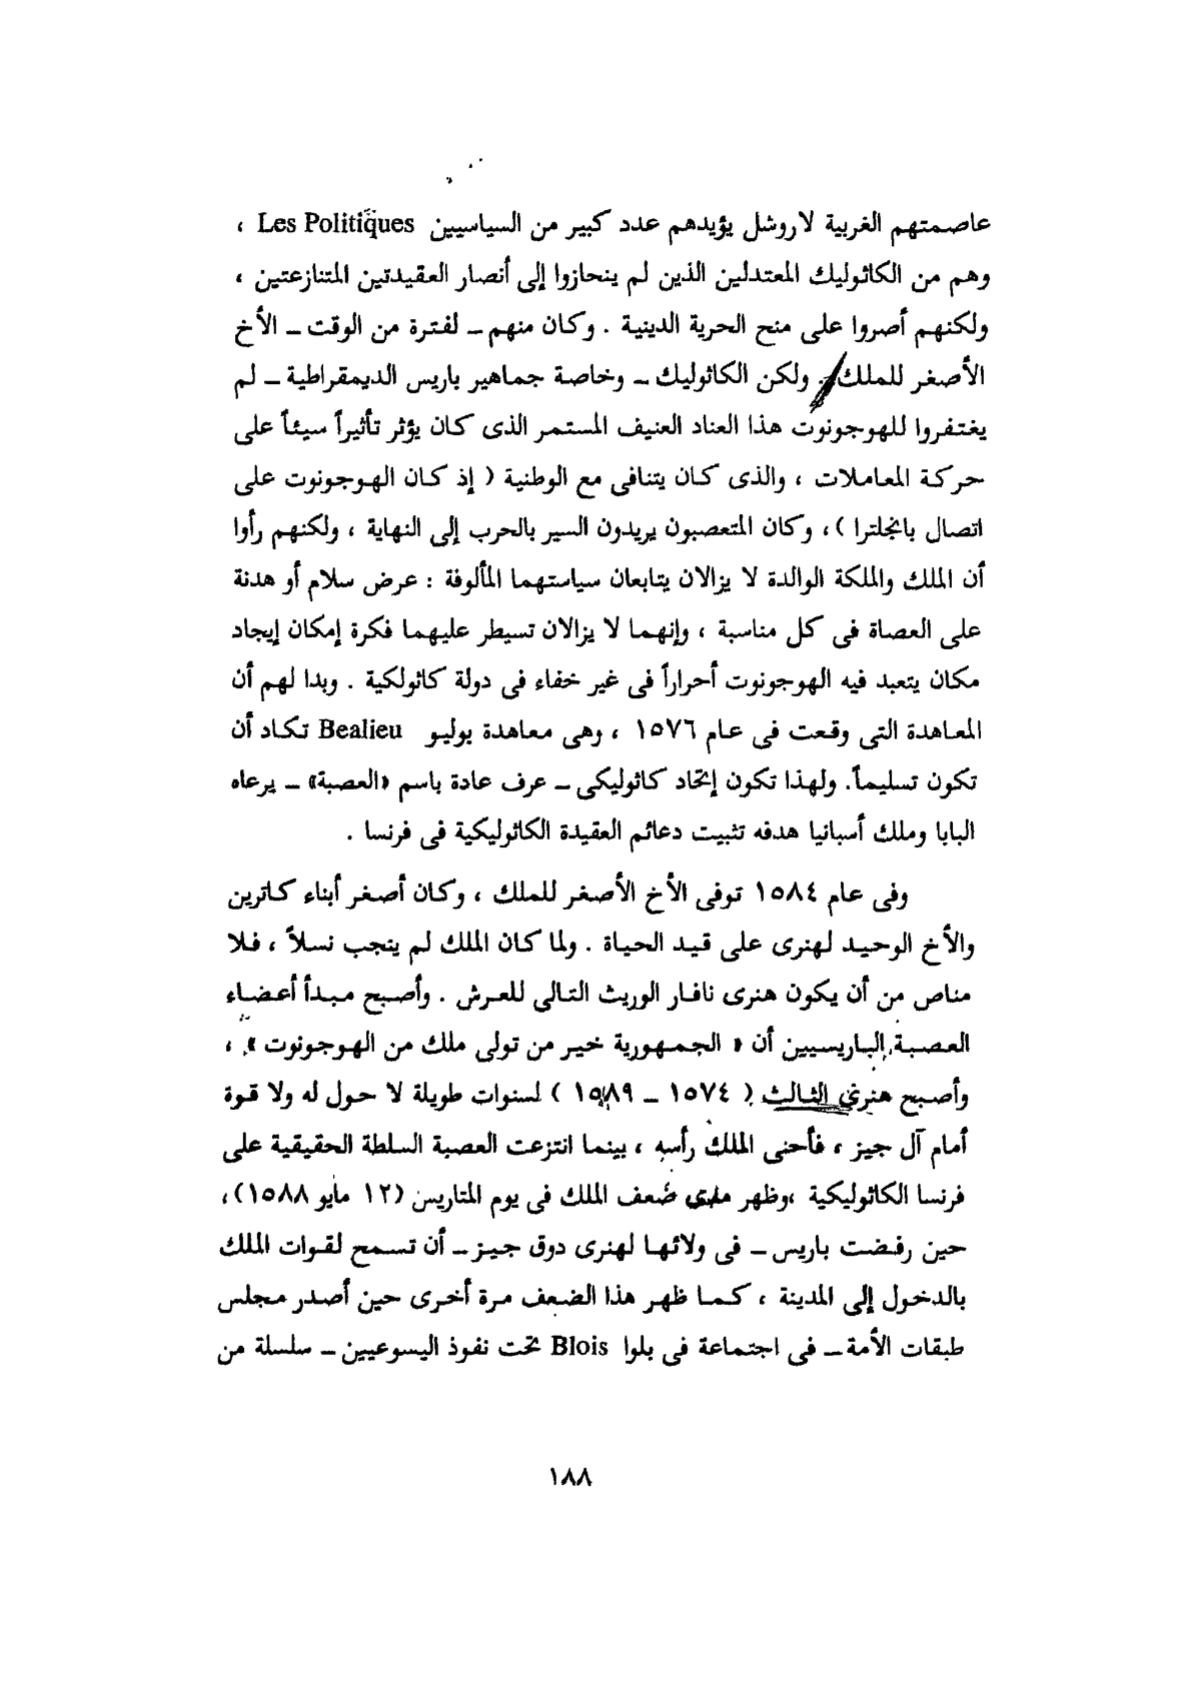 عاصمتهم الغربية لاروشل يؤيدهم عدد كبير من السياسيين Les Politiques ،
وهم من الكاثوليك المعتدلين الذين لم ينحازوا إلى أنصار العقيدتين المتنازعتين ،
ولكنهم أصروا على منح الحرية الدينية . وكان منهم ــ لفترة من الوقت ــ الأخ
الأصغر للملك . ولكن الكاثوليك ــ وخاصة جماهير باريس الديمقراطية ــ لم
يغتفروا للهوجونوت هذا العناد العنيف المستمر الذى كان يؤثر تأثيراً سيئاً على
حركة المعاملات ، والذى كان يتنافى مع الوطنية ( إذ كان الهوجونوت على
اتصال بانجلترا ) ، وكان المتعصبون يريدون السير بالحرب إلى النهاية ، ولكنهم رأوا
أن الملك والملكة الوالدة لا يزالان يتابعان سياستهما المألوفة : عرض سلام أو هدنة
على العصاة فى كل مناسبة ، وإنهما لا يزالان تسيطر عليهما فكرة إمكان إيجاد
مكان يتعبد فيه الهوجونوت أحراراً فى غير خفاء فى دولة كاثولكية . وبدا لهم أن
المعاهدة التى وقعت فى عام ١٥٧٦ ، وهى معاهدة بوليو Bealieu تكاد أن
تكون تسليماً. ولهذا تكون إتحاد كاثوليكى ــ عرف عادة باسم «العصبة» ــ يرعاه
البابا وملك أسبانيا هدفه تثبيت دعائم العقيدة الكاثوليكية فى فرنسا .
وفى عام ١٥٨٤ توفى الأخ الأصغر للملك ، وكان أصغر أبناء كاترين
والأخ الوحيد لهنرى على قيد الحياة . ولما كان الملك لم ينجب نسلاً ، فلا
مناص من أن يكون هنرى نافار الوريث التالى للعرش . وأصبح مبدأ أعضاء
العصبة الباريسيين أن « الجمهورية خير من تولى ملك من الهوجونوت » ،
وأصبح هنرى الثالث ( ١٥٧٤ ــ ١٥٨٩ ) لسنوات طويلة لا حول له ولا قوة
أمام آل جيز ، فأحنى الملك رأسه ، بينما انتزعت العصبة السلطة الحقيقية على
فرنسا الكاثوليكية ،وظهر مدى ضعف الملك فى يوم المتاريس (١٢ مايو ١٥٨٨)،
حين رفضت باريس ــ فى ولائها لهنرى دوق جيز ــ أن تسمح لقوات الملك
بالدخول إلى المدينة ، كما ظهر هذا الضعف مرة أخرى حين أصدر مجلس
طبقات الأمة ــ فى اجتماعة فى بلوا Blois تحت نفوذ اليسوعيين ــ سلسلة من
١٨٨